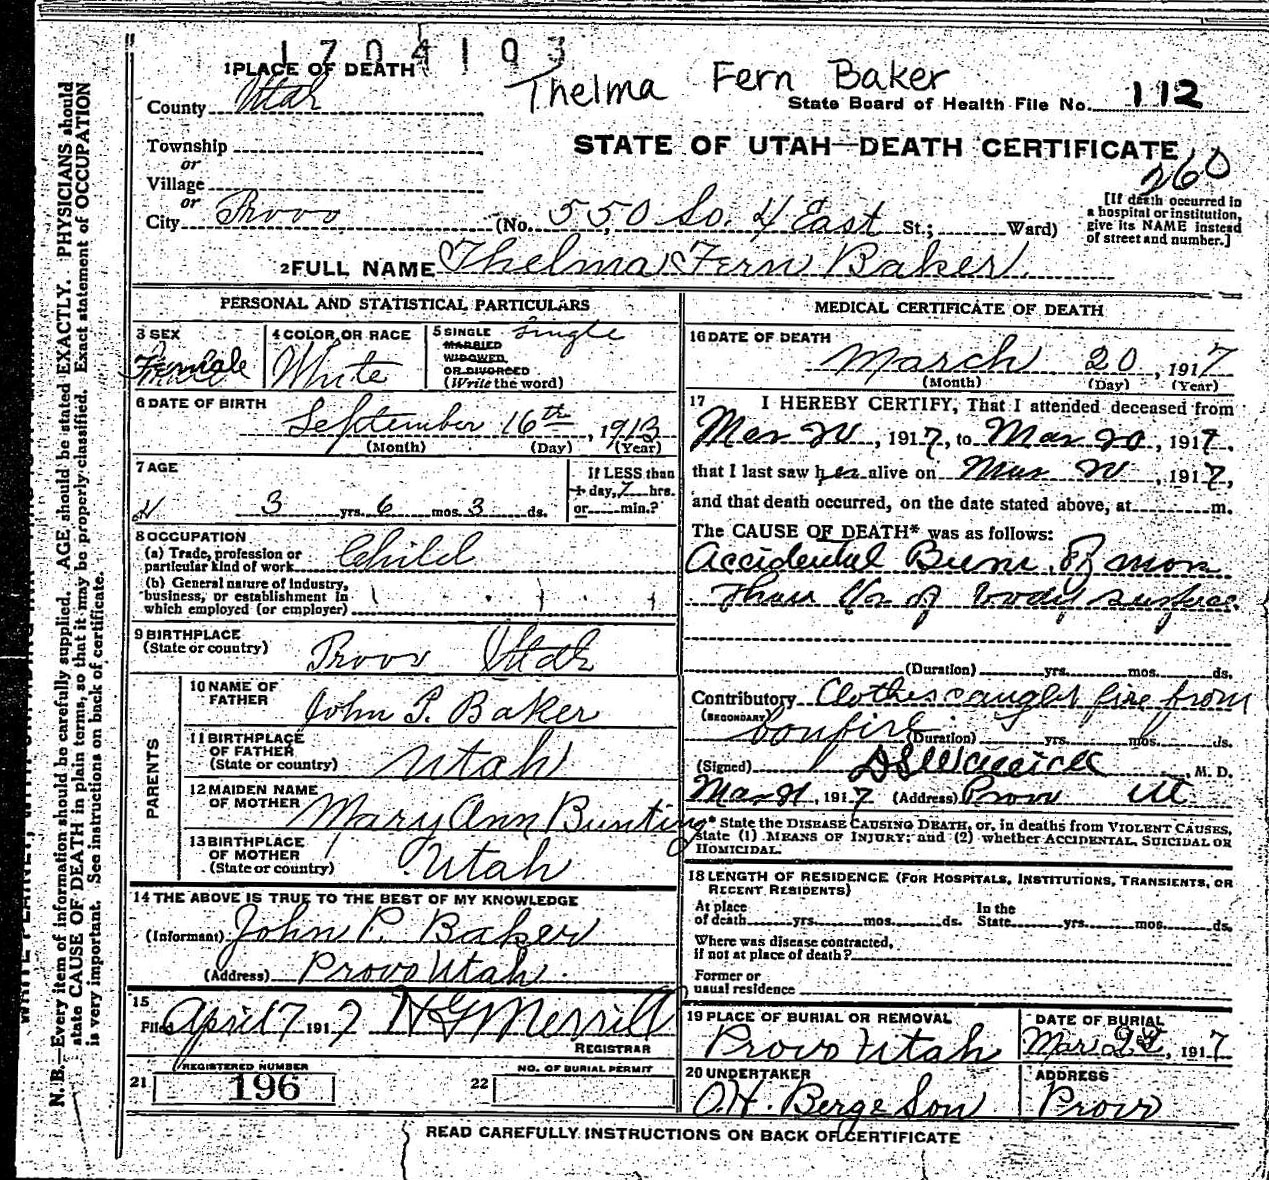 1704103
1 PLACE OF DEATH
Thelma Fern Baker
County Utah
State Board of Health File No. 112
Township
or
STATE OF UTAH—DEATH CERTIFICATE
260
Village
or
City Provo (No. 550 So. 4 East St.; Ward)
[If death occurred in
a hospital or institution,
give its NAME instead
of street and number.]
2 FULL NAME Thelma Fern Baker
PERSONAL AND STATISTICAL PARTICULARS
3 SEX
Female
4 COLOR OR RACE
White
5 SINGLE
MARRIED
WIDOWED
OR DIVORCED
(Write the word)
Single
6 DATE OF BIRTH
September 16th, 1913
(Month) (Day) (Year)
7 AGE
3 yrs. 6 mos. 3 ds.
If LESS than
1 day, hrs.
or min.?
8 OCCUPATION
(a) Trade, profession or
particular kind of work Child
(b) General nature of industry,
business, or establishment in
which employed (or employer)
9 BIRTHPLACE
(State or country) Provo Utah
PARENTS
10 NAME OF
FATHER John P. Baker
11 BIRTHPLACE
OF FATHER
(State or country) Utah
12 MAIDEN NAME
OF MOTHER Mary Ann Bunting
13 BIRTHPLACE
OF MOTHER
(State or country) Utah
14 THE ABOVE IS TRUE TO THE BEST OF MY KNOWLEDGE
(Informant) John P. Baker
(Address) Provo Utah.
15
Filed April 7 1917 H G Merrill
REGISTRAR
21 REGISTERED NUMBER
196
22 NO. OF BURIAL PERMIT
MEDICAL CERTIFICATE OF DEATH
16 DATE OF DEATH
March 20, 1917
(Month) (Day) (Year)
17 I HEREBY CERTIFY, That I attended deceased from
Mar 20, 1917, to Mar 20, 1917,
that I last saw her alive on Mar 20, 1917,
and that death occurred, on the date stated above, at m.
The CAUSE OF DEATH* was as follows:
Accidental Burn of more
than 1/2 of body surface
(Duration) yrs. mos. ds.
Contributory Clothes caught fire from
(SECONDARY) bonfire (Duration) yrs. mos. ds.
(Signed), M. D.
Mar 21, 1917 (Address) Provo Ut
* State the DISEASE CAUSING DEATH, or, in deaths from VIOLENT CAUSES,
state (1) MEANS OF INJURY; and (2) whether ACCIDENTAL, SUICIDAL OR
HOMICIDAL.
18 LENGTH OF RESIDENCE (FOR HOSPITALS, INSTITUTIONS, TRANSIENTS, OR
RECENT RESIDENTS)
At place
of death yrs. mos. ds.
In the
State yrs. mos. ds.
Where was disease contracted,
if not at place of death?
Former or
usual residence
19 PLACE OF BURIAL OR REMOVAL
Provo Utah
DATE OF BURIAL
Mar, 1917
20 UNDERTAKER
O.H. Berg & Son
ADDRESS
Provo
READ CAREFULLY INSTRUCTIONS ON BACK OF CERTIFICATE
N. B.—Every item of information should be carefully supplied. AGE should be stated EXACTLY. PHYSICIANS should
state CAUSE OF DEATH in plain terms, so that it may be properly classified. Exact statement of OCCUPATION
is very important. See instructions on back of certificate.